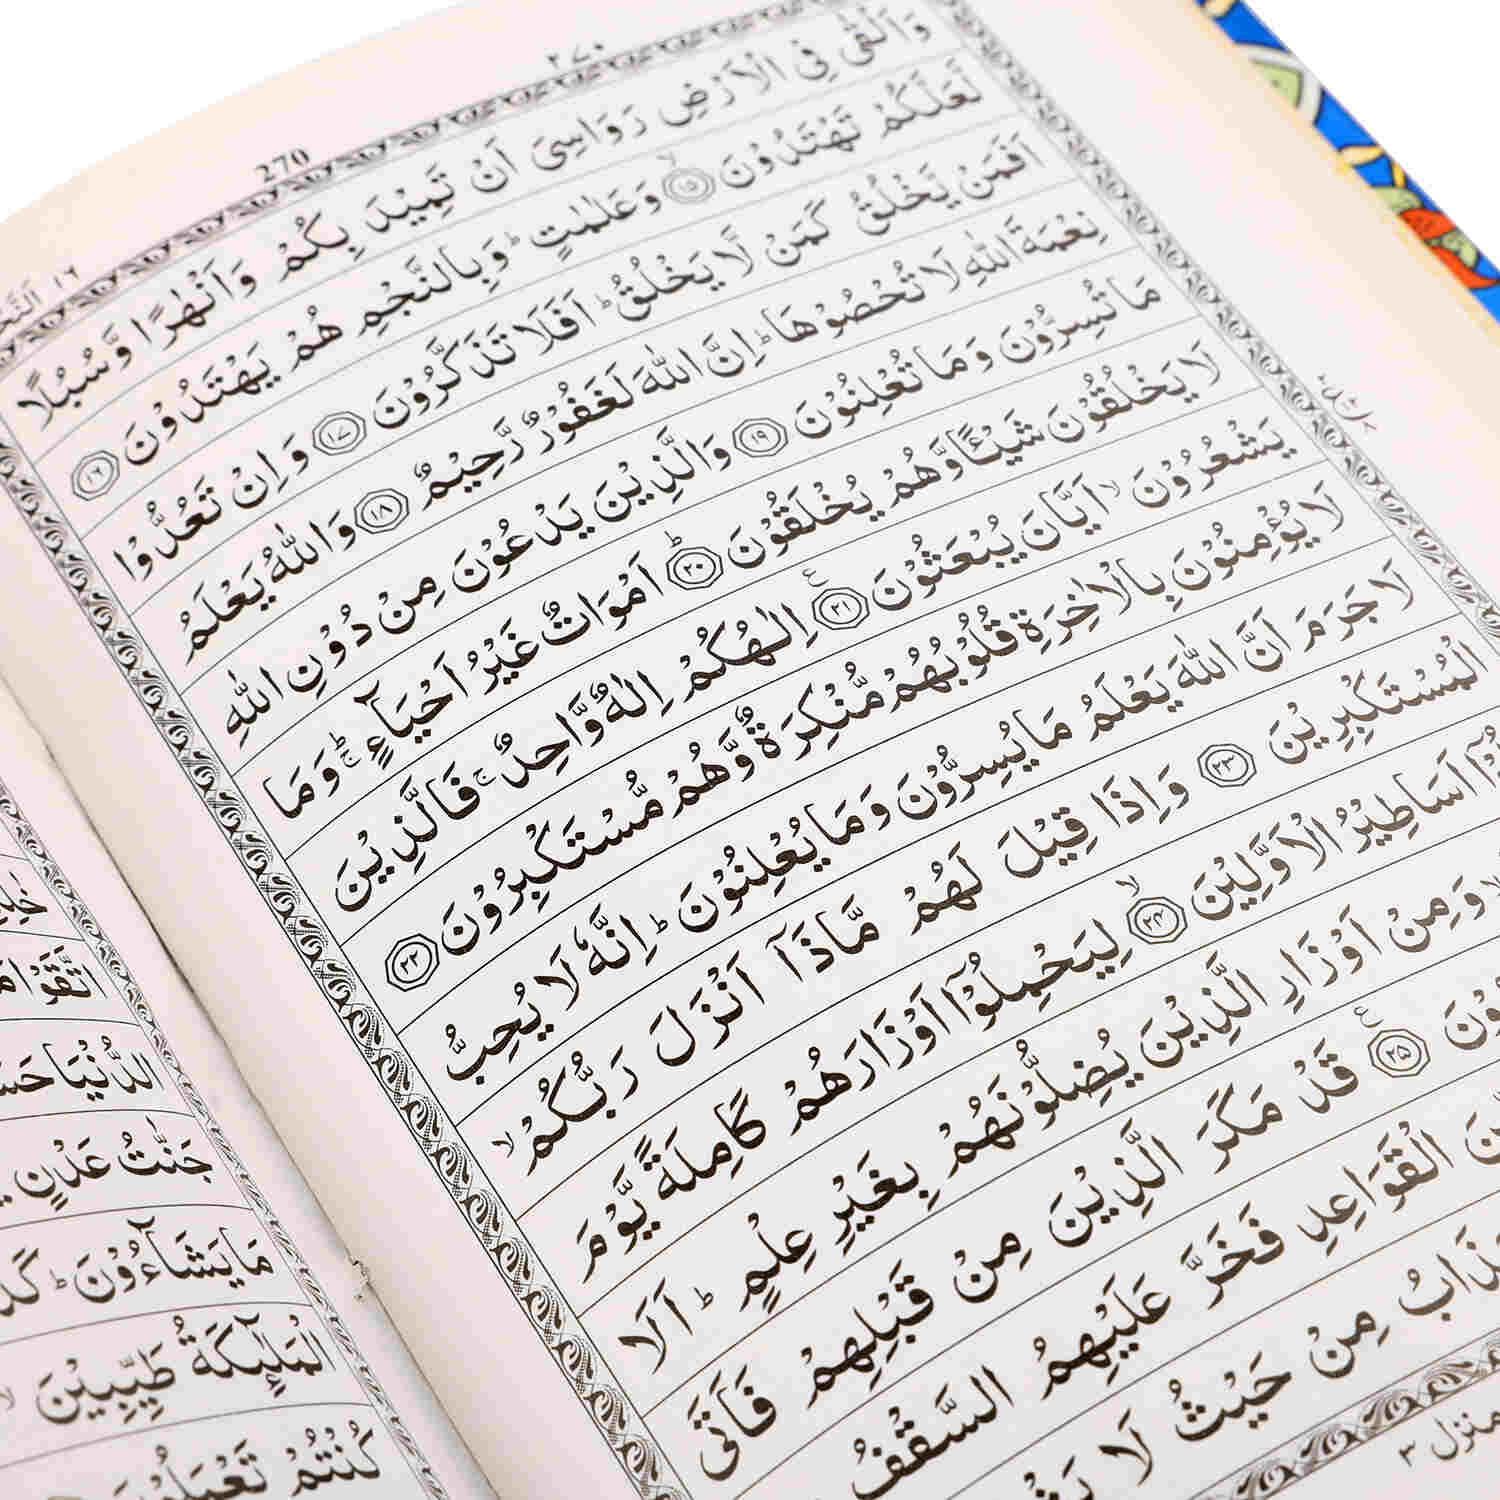 ٢٧٠
270
١٦ النَّحل
وَاَلْقٰى فِى الْاَرْضِ رَوَاسِىَ اَنْ تَمِيْدَ بِكُمْ وَاَنْهٰرًا وَّسُبُلًا
لَعَلَّكُمْ تَهْتَدُوْنَ ۙ ١٥ وَعَلٰمٰتٍ ؕ وَبِالنَّجْمِ هُمْ يَهْتَدُوْنَ ١٦
اَفَمَنْ يَّخْلُقُ كَمَنْ لَّا يَخْلُقُ ؕ اَفَلَا تَذَكَّرُوْنَ ١٧ وَاِنْ تَعُدُّوْا
نِعْمَةَ اللّٰهِ لَا تُحْصُوْهَا ؕ اِنَّ اللّٰهَ لَغَفُوْرٌ رَّحِيْمٌ ١٨ وَاللّٰهُ يَعْلَمُ
مَا تُسِرُّوْنَ وَمَا تُعْلِنُوْنَ ١٩ وَالَّذِيْنَ يَدْعُوْنَ مِنْ دُوْنِ اللّٰهِ
لَا يَخْلُقُوْنَ شَيْـًٔا وَّهُمْ يُخْلَقُوْنَ ؕ ٢٠ اَمْوَاتٌ غَيْرُ اَحْيَآءٍ ۚ وَمَا
يَشْعُرُوْنَ ۙ اَيَّانَ يُبْعَثُوْنَ ٢١ اِلٰهُكُمْ اِلٰهٌ وَّاحِدٌ ۚ فَالَّذِيْنَ
لَا يُؤْمِنُوْنَ بِالْاٰخِرَةِ قُلُوْبُهُمْ مُّنْكِرَةٌ وَّهُمْ مُّسْتَكْبِرُوْنَ ٢٢
لَا جَرَمَ اَنَّ اللّٰهَ يَعْلَمُ مَا يُسِرُّوْنَ وَمَا يُعْلِنُوْنَ ؕ اِنَّهٗ لَا يُحِبُّ
الْمُسْتَكْبِرِيْنَ ٢٣ وَاِذَا قِيْلَ لَهُمْ مَّاذَآ اَنْزَلَ رَبُّكُمْ ۙ
اَسَاطِيْرُ الْاَوَّلِيْنَ ۙ ٢٤ لِيَحْمِلُوْٓا اَوْزَارَهُمْ كَامِلَةً يَّوْمَ
وَمِنْ اَوْزَارِ الَّذِيْنَ يُضِلُّوْنَهُمْ بِغَيْرِ عِلْمٍ ؕ اَلَا
٢٥ قَدْ مَكَرَ الَّذِيْنَ مِنْ قَبْلِهِمْ فَاَتَى
الْقَوَاعِدِ فَخَرَّ عَلَيْهِمُ السَّقْفُ
مِنْ حَيْثُ لَا
منزل ٣
الدُّنْيَا
جَنّٰتُ عَدْنٍ
مَا يَشَآءُوْنَ ؕ
الْمَلٰٓئِكَةُ طَيِّبِيْنَ ۙ
كُنْتُمْ تَعْمَلُوْنَ